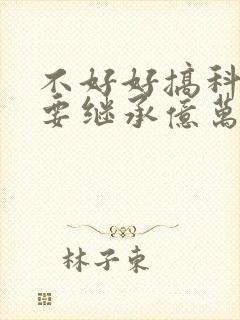 不好好搞科
要继承億萬
林子東